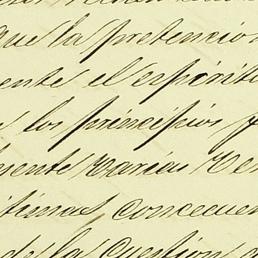 que la pretencio
ente el espirit
los principios y
mente varias
timas, concecuen
de la question